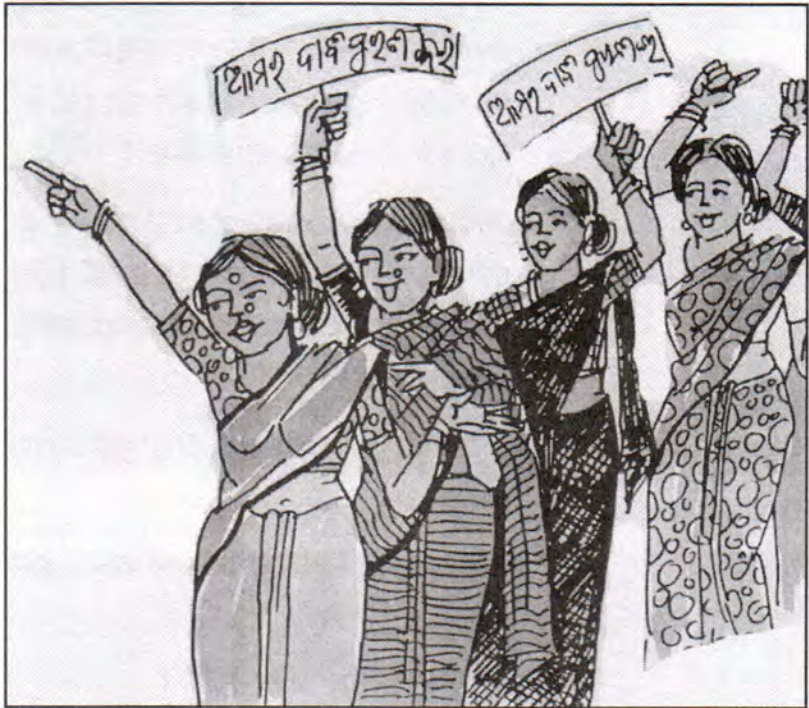 ଆମର ଦାବି ପୁରଣ କର।
ଆମର ଦାବି ପୁରଣ କର